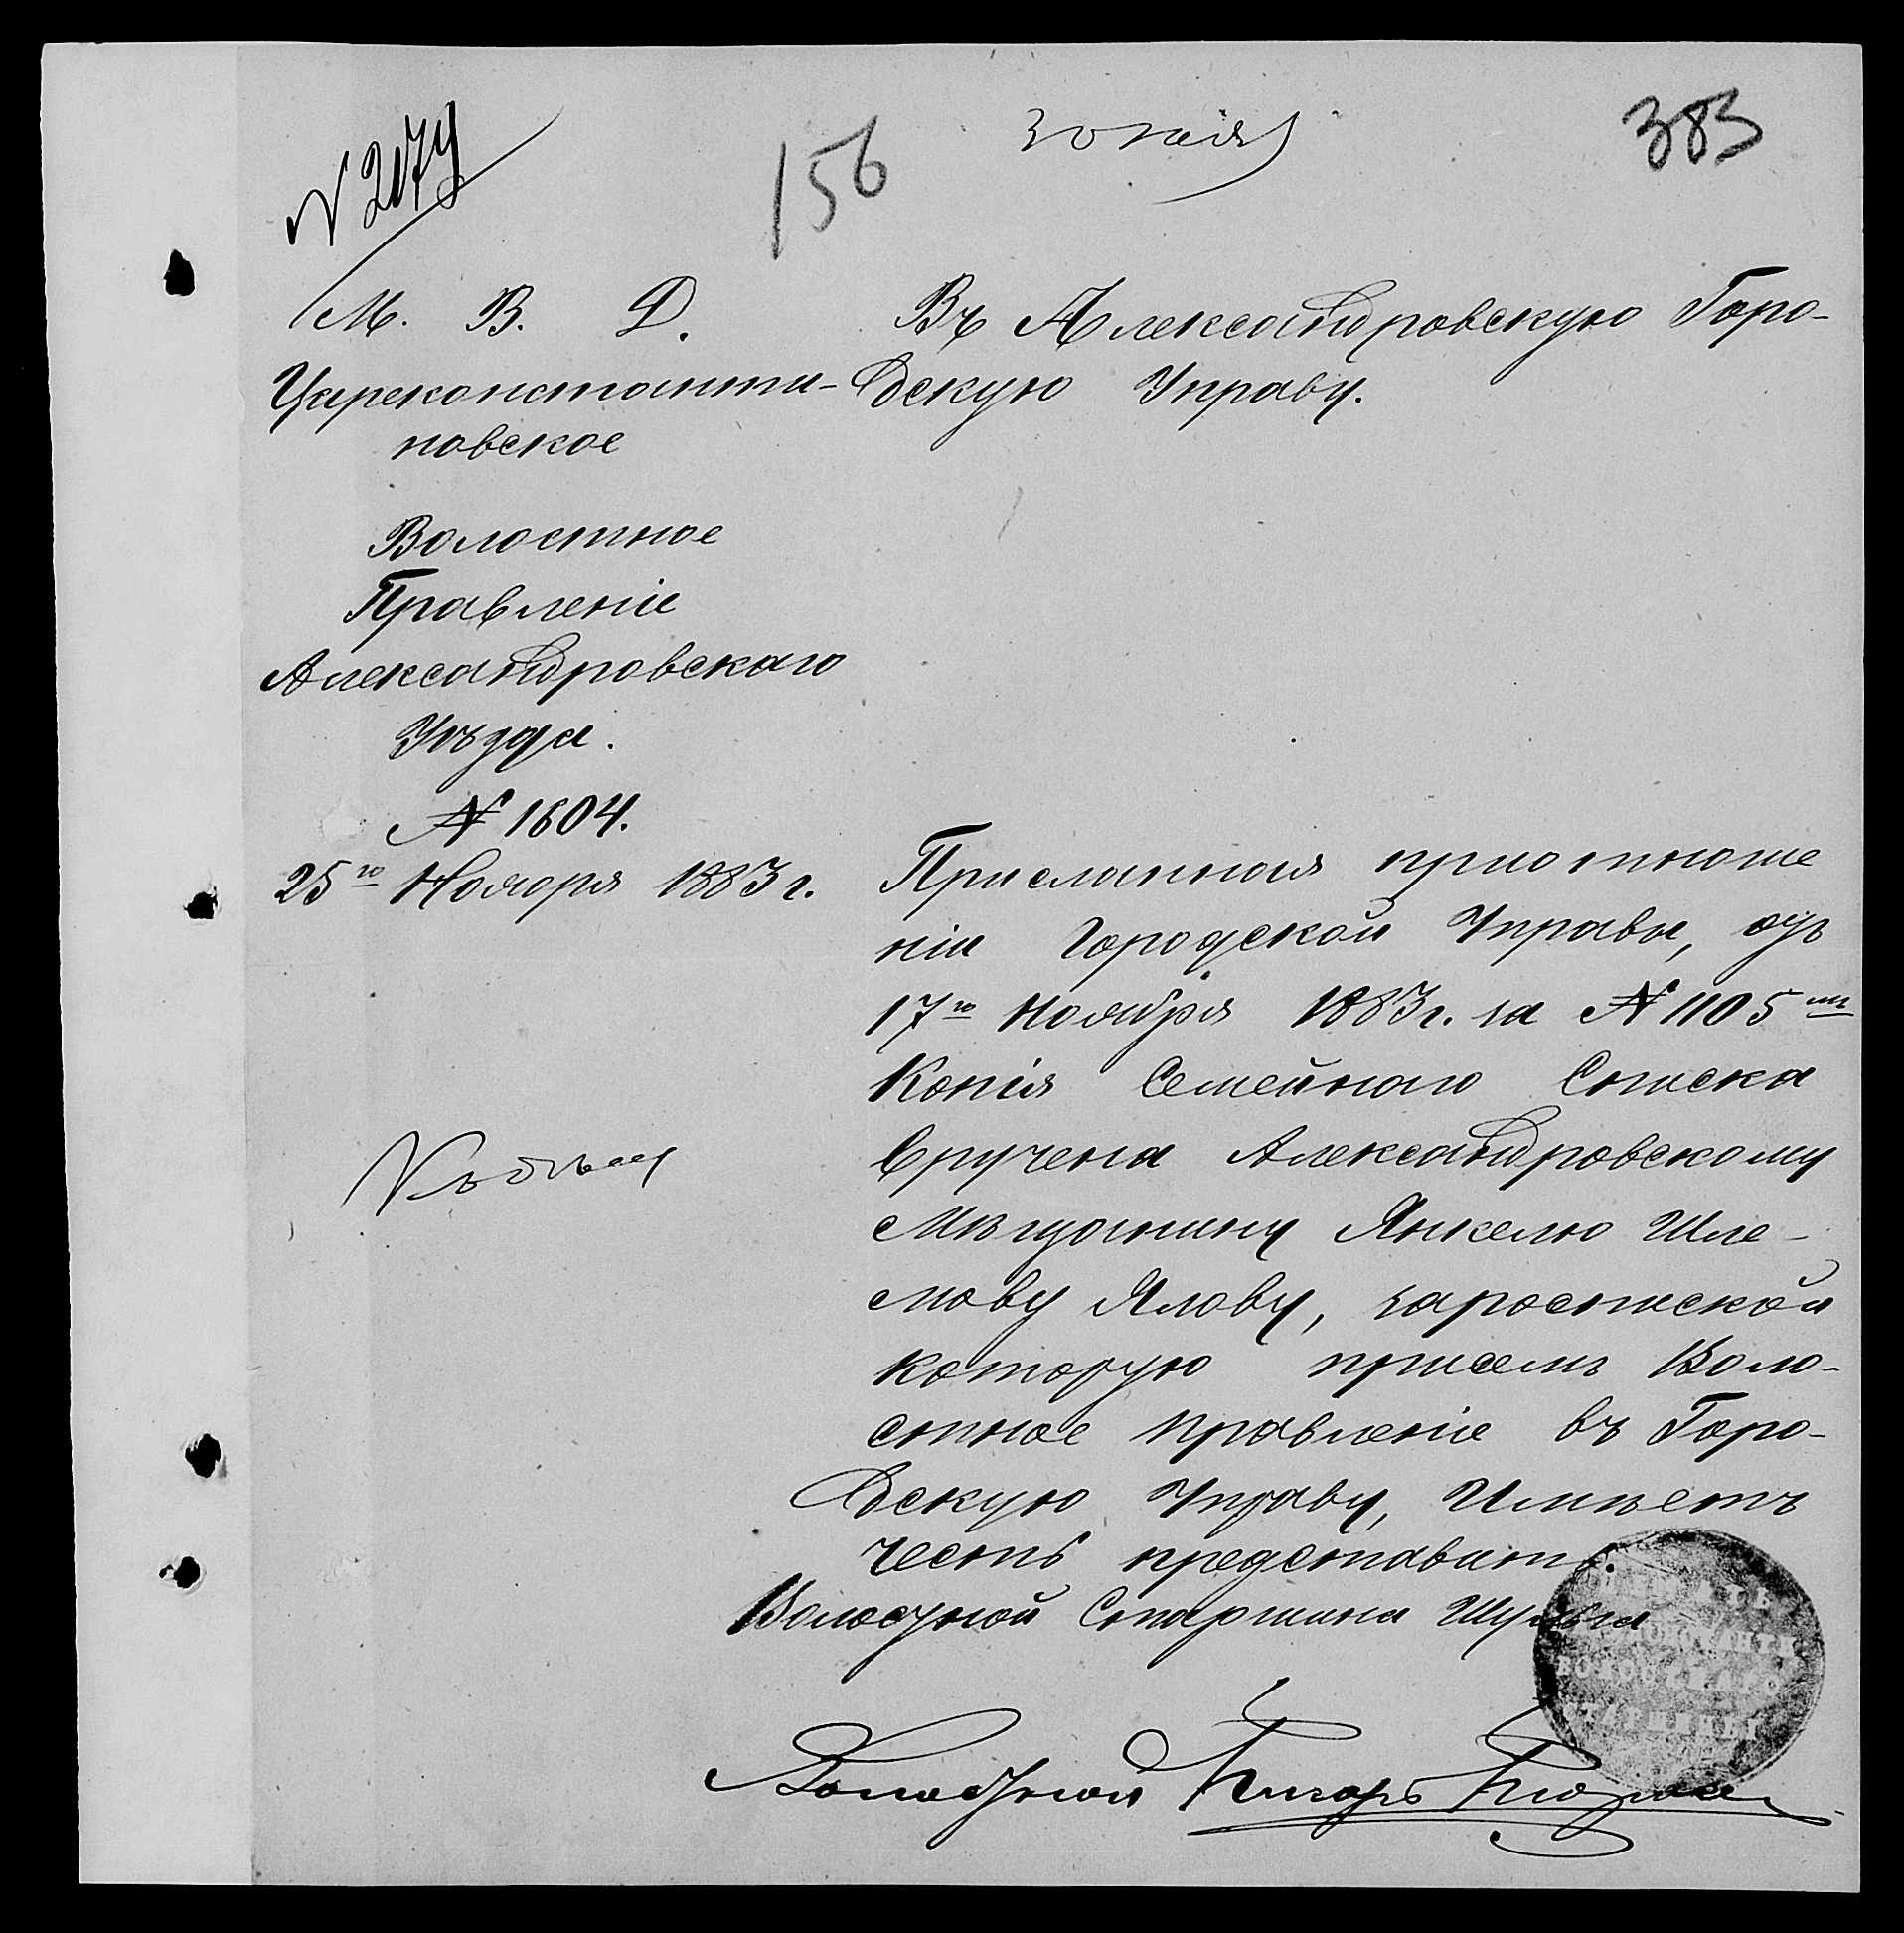 № 2079
156
30 ноя
383
М. В. Д.
Цареконстанти-
новское
Волостное
Правленіе
Александровскаго
Уѣзда.
№ 1604.
25го Ноября 1883 г.
Въ Александровскую Горо-
дскую Управу.
Присланная приотноше
ніи Городской Управы, отъ
17го Ноября 1883 г. за № 1105мъ
Копія Семейнаго Списка
вручена Александровскому
Мѣщанину Янкелю Шле-
мову Ялову, зароспиской
которую присемъ Воло-
стное Правленіе въ Горо-
дскую Управу, Имѣетъ
честь представить.
Волостной Старшина Шульга
Волостной Писарь